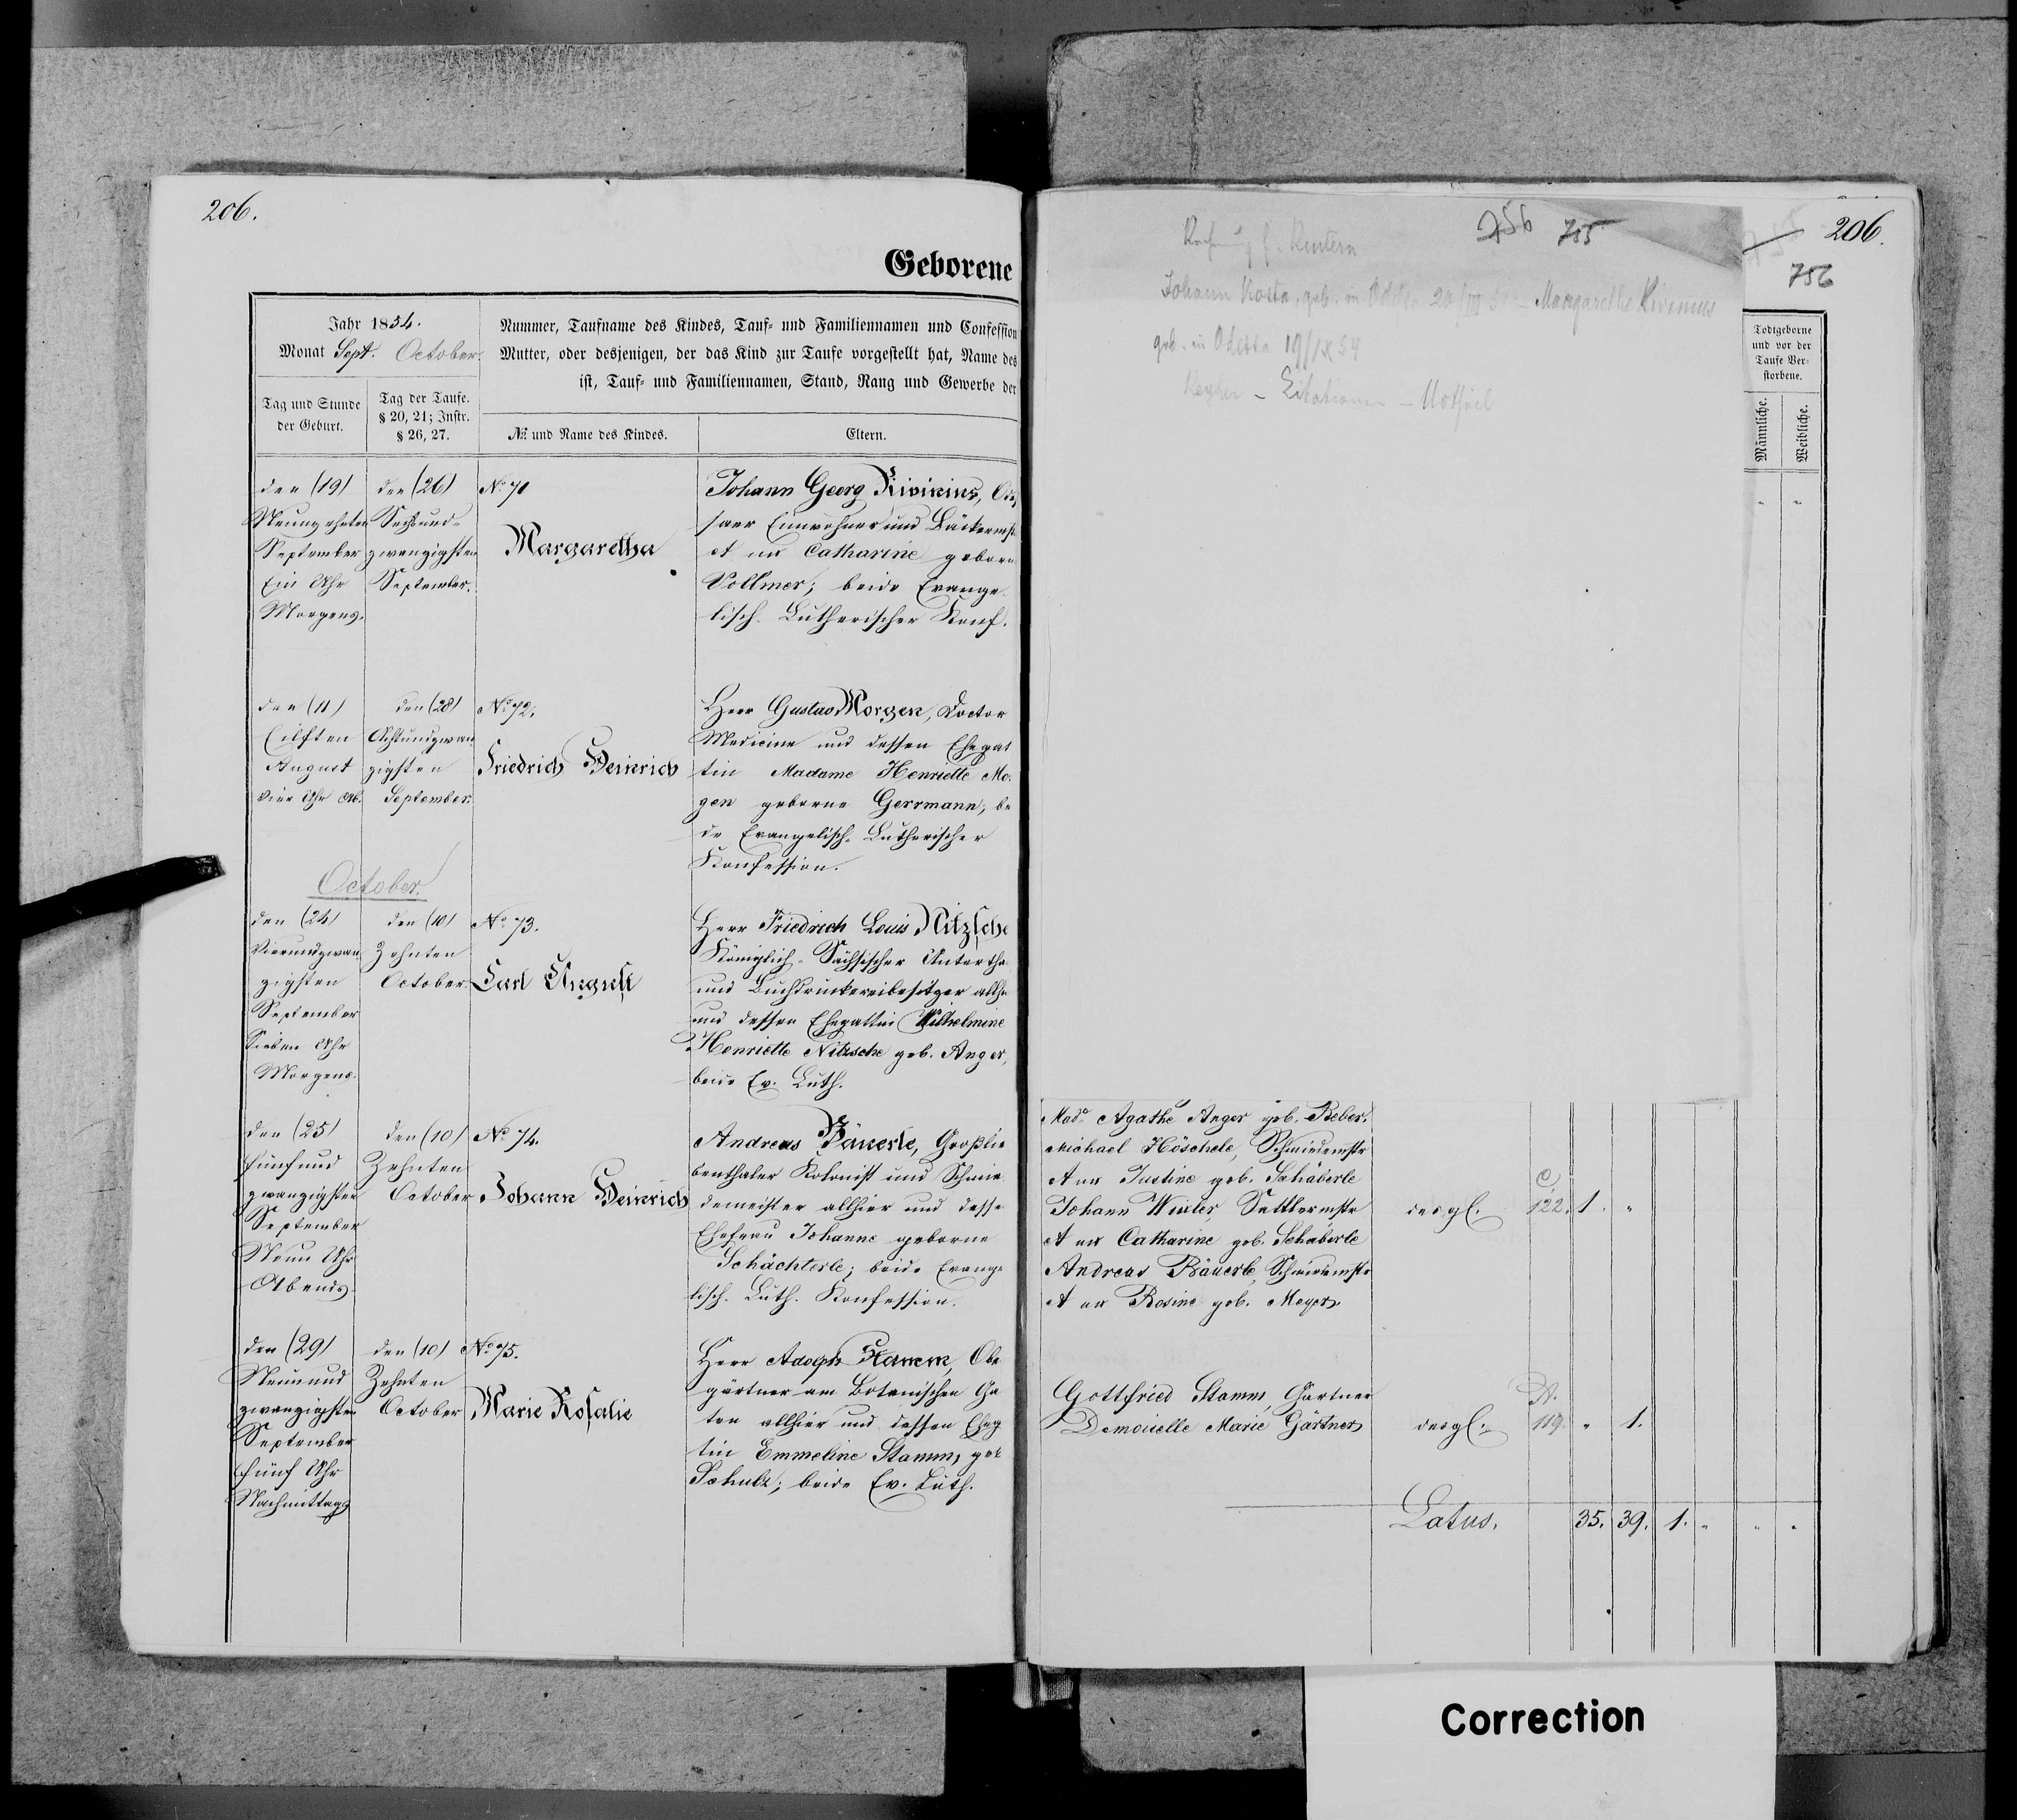 206.
Geborene
Jahr 1854.
Monat Sept. October.
Nummer, Taufname des Kindes, Tauf- und Familiennamen und Confession
Mutter, oder desjenigen, der das Kind zur Taufe vorgestellt hat, Name des
ist, Tauf- und Familiennamen, Stand, Rang und Gewerbe der
Tag und Stunde
der Geburt.
Tag der Taufe.
§ 20, 21; Instr.
§ 26, 27.
№ und Name des Kindes.
Eltern.
den (19)
Neunzehnten
September
Ein Uhr
Morgens.
den (26)
Sechsund-
zwanzigsten
September.
No 71
Margaretha
Johann Georg Rivinius, Odes
saer Einwohner und Bäckermst.
et ux Catharine geborn
Vollmer; beide Evange
lisch-Lutherischer Konf.
den (11)
Eilften
August
vier Uhr Ab.
den (28)
Achtundzwan
zigsten
September.
No 72.
Friedrich Heinrich
Herr Gustav Morgen, Doctor
Medicine und dessen Ehegat
tin Madame Henriette Mo.
gen geborne Gerrmann; be
de Evangelisch-Lutherischer
Konfession.
October.
den (24)
Vierundzwan
zigsten
September
Sieben Uhr
Morgens.
den (10)
Zehnten
October.
No 73.
Carl August
Herr Friedrich Louis Nitzsche
Königlich-Sächsischer Untertha
und Buchdruckereibesitzer allhi
und dessen Ehegattin Wilhelmine
Henriette Nitzsche geb. Anger,
beide Ev. Luth.
den (25)
Fünfund
zwanzigsten
September
Neun Uhr
Abends.
den (10)
Zehnten
October
No 74.
Johann Heinrich
Andreas Bäuerle, Großlie
benthaler Kolonist und Schmie
demeister allhier und desse
Ehefrau Johanne geborne
Schächterle; beide Evange
lisch-Luth. Konfession.
den (29)
Neunund
zwanzigsten
September
Fünf Uhr
Nachmittags
den (10)
Zehnten
October
No 75.
Marie Rosalie
Herr Adolph Stamm, Obe
gärtner am Botanischen Ga
ten allhier und dessen Eheg
tin Emmeline Stamm, geb
Schulz; beide Ev. Luth.
756 755
206.
756
Johann Kosta, geb. in Odessa 20/III 5 - Margarethe Rivinius
geb. in Odessa 19/IX 54
Todtgeborne
und vor der
Taufe Ver-
storbene.
Männliche.
Weibliche.
Mad. Agathe Anger geb. Beber.
Michael Höschele, Schmiedemstr
et ux Justine geb. Schäberle
Johann Winter, Sattlermstr
et ux Catharine geb. Schäberle
Andreas Bäuerle, Schmiedemstr
et ux Rosine geb. Meyer.
desgl. C. 122. 1. "
Gottfried Stamm, Gärtner
Demoiselle Marie Gärtner
desgl. A. 119. " 1.
Latus. 35. 39. 1. " " "
Correction